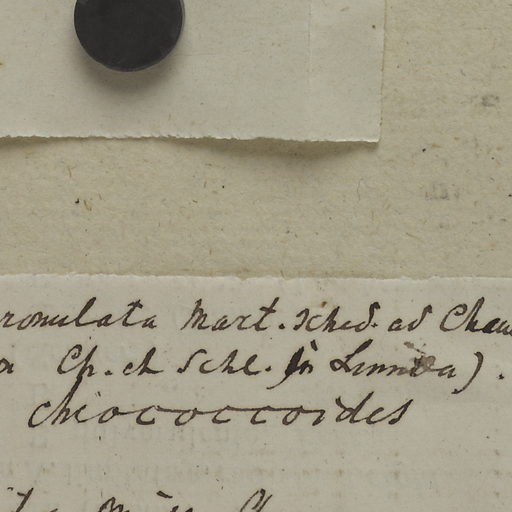 ronulata Mart. Sched. ad Cham
a Ch. et Schl. in Linnæa).
chiococcoides